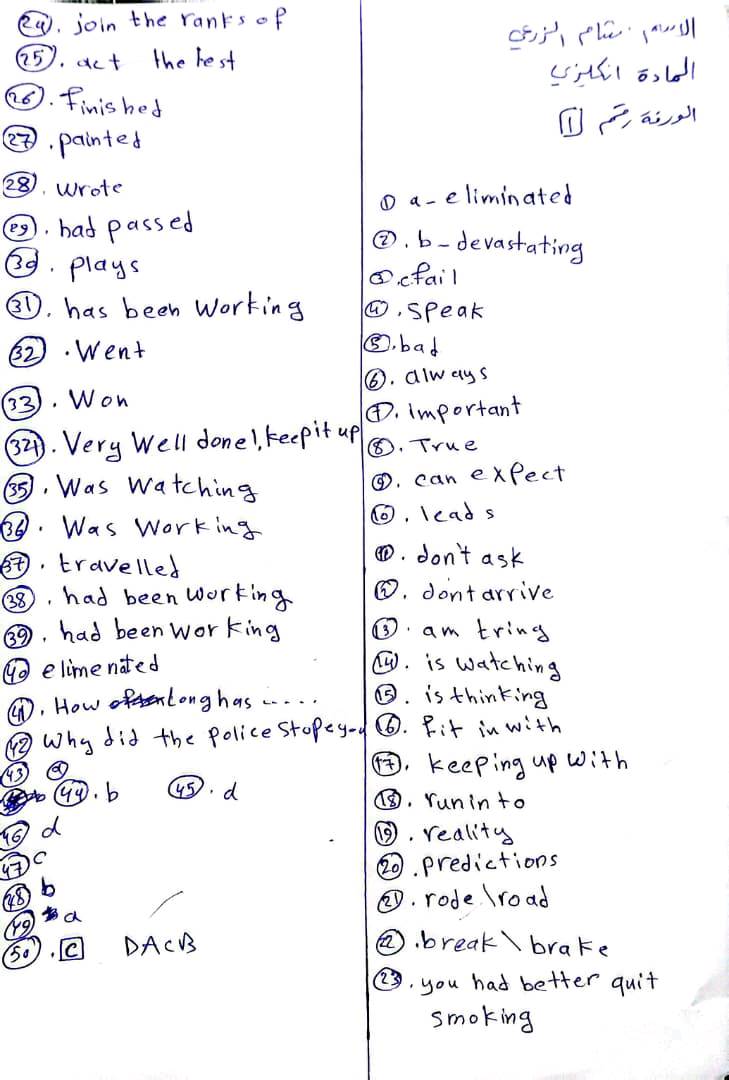 الاسم: هشام الزرعي
المادة انكليزي
الورقة رقم 1
① a- eliminated
②. b- devastating
③. c fail
④. speak
⑤. bad
⑥. always
⑦. important
⑧. True
⑨. can expect
⑩. leads
⑪. don't ask
⑫. dont arrive
⑬. am tring
⑭. is watching
⑮. is thinking
⑯. fit in with
⑰. keeping up with
⑱. run in to
⑲. reality
⑳. predictions
㉑. rode \ road
㉒. break \ brake
㉓. you had better quit
smoking
㉔. join the ranks of
㉕. act the test
㉖. finished
㉗. painted
㉘. wrote
㉙. had passed
㉚. plays
㉛. has been working
㉜. Went
㉝. Won
㉞. Very Well done!, keep it up
㉟. Was Watching
㊱. Was Working
㊲. travelled
㊳. had been working
㊴. had been working
㊵ elimenated
㊶. How long has .....
㊷ Why did the police stope you
㊸ a
㊹. b ㊺. d
㊻ d
㊼ c
㊽ b
㊾ a
㊿. C DACB